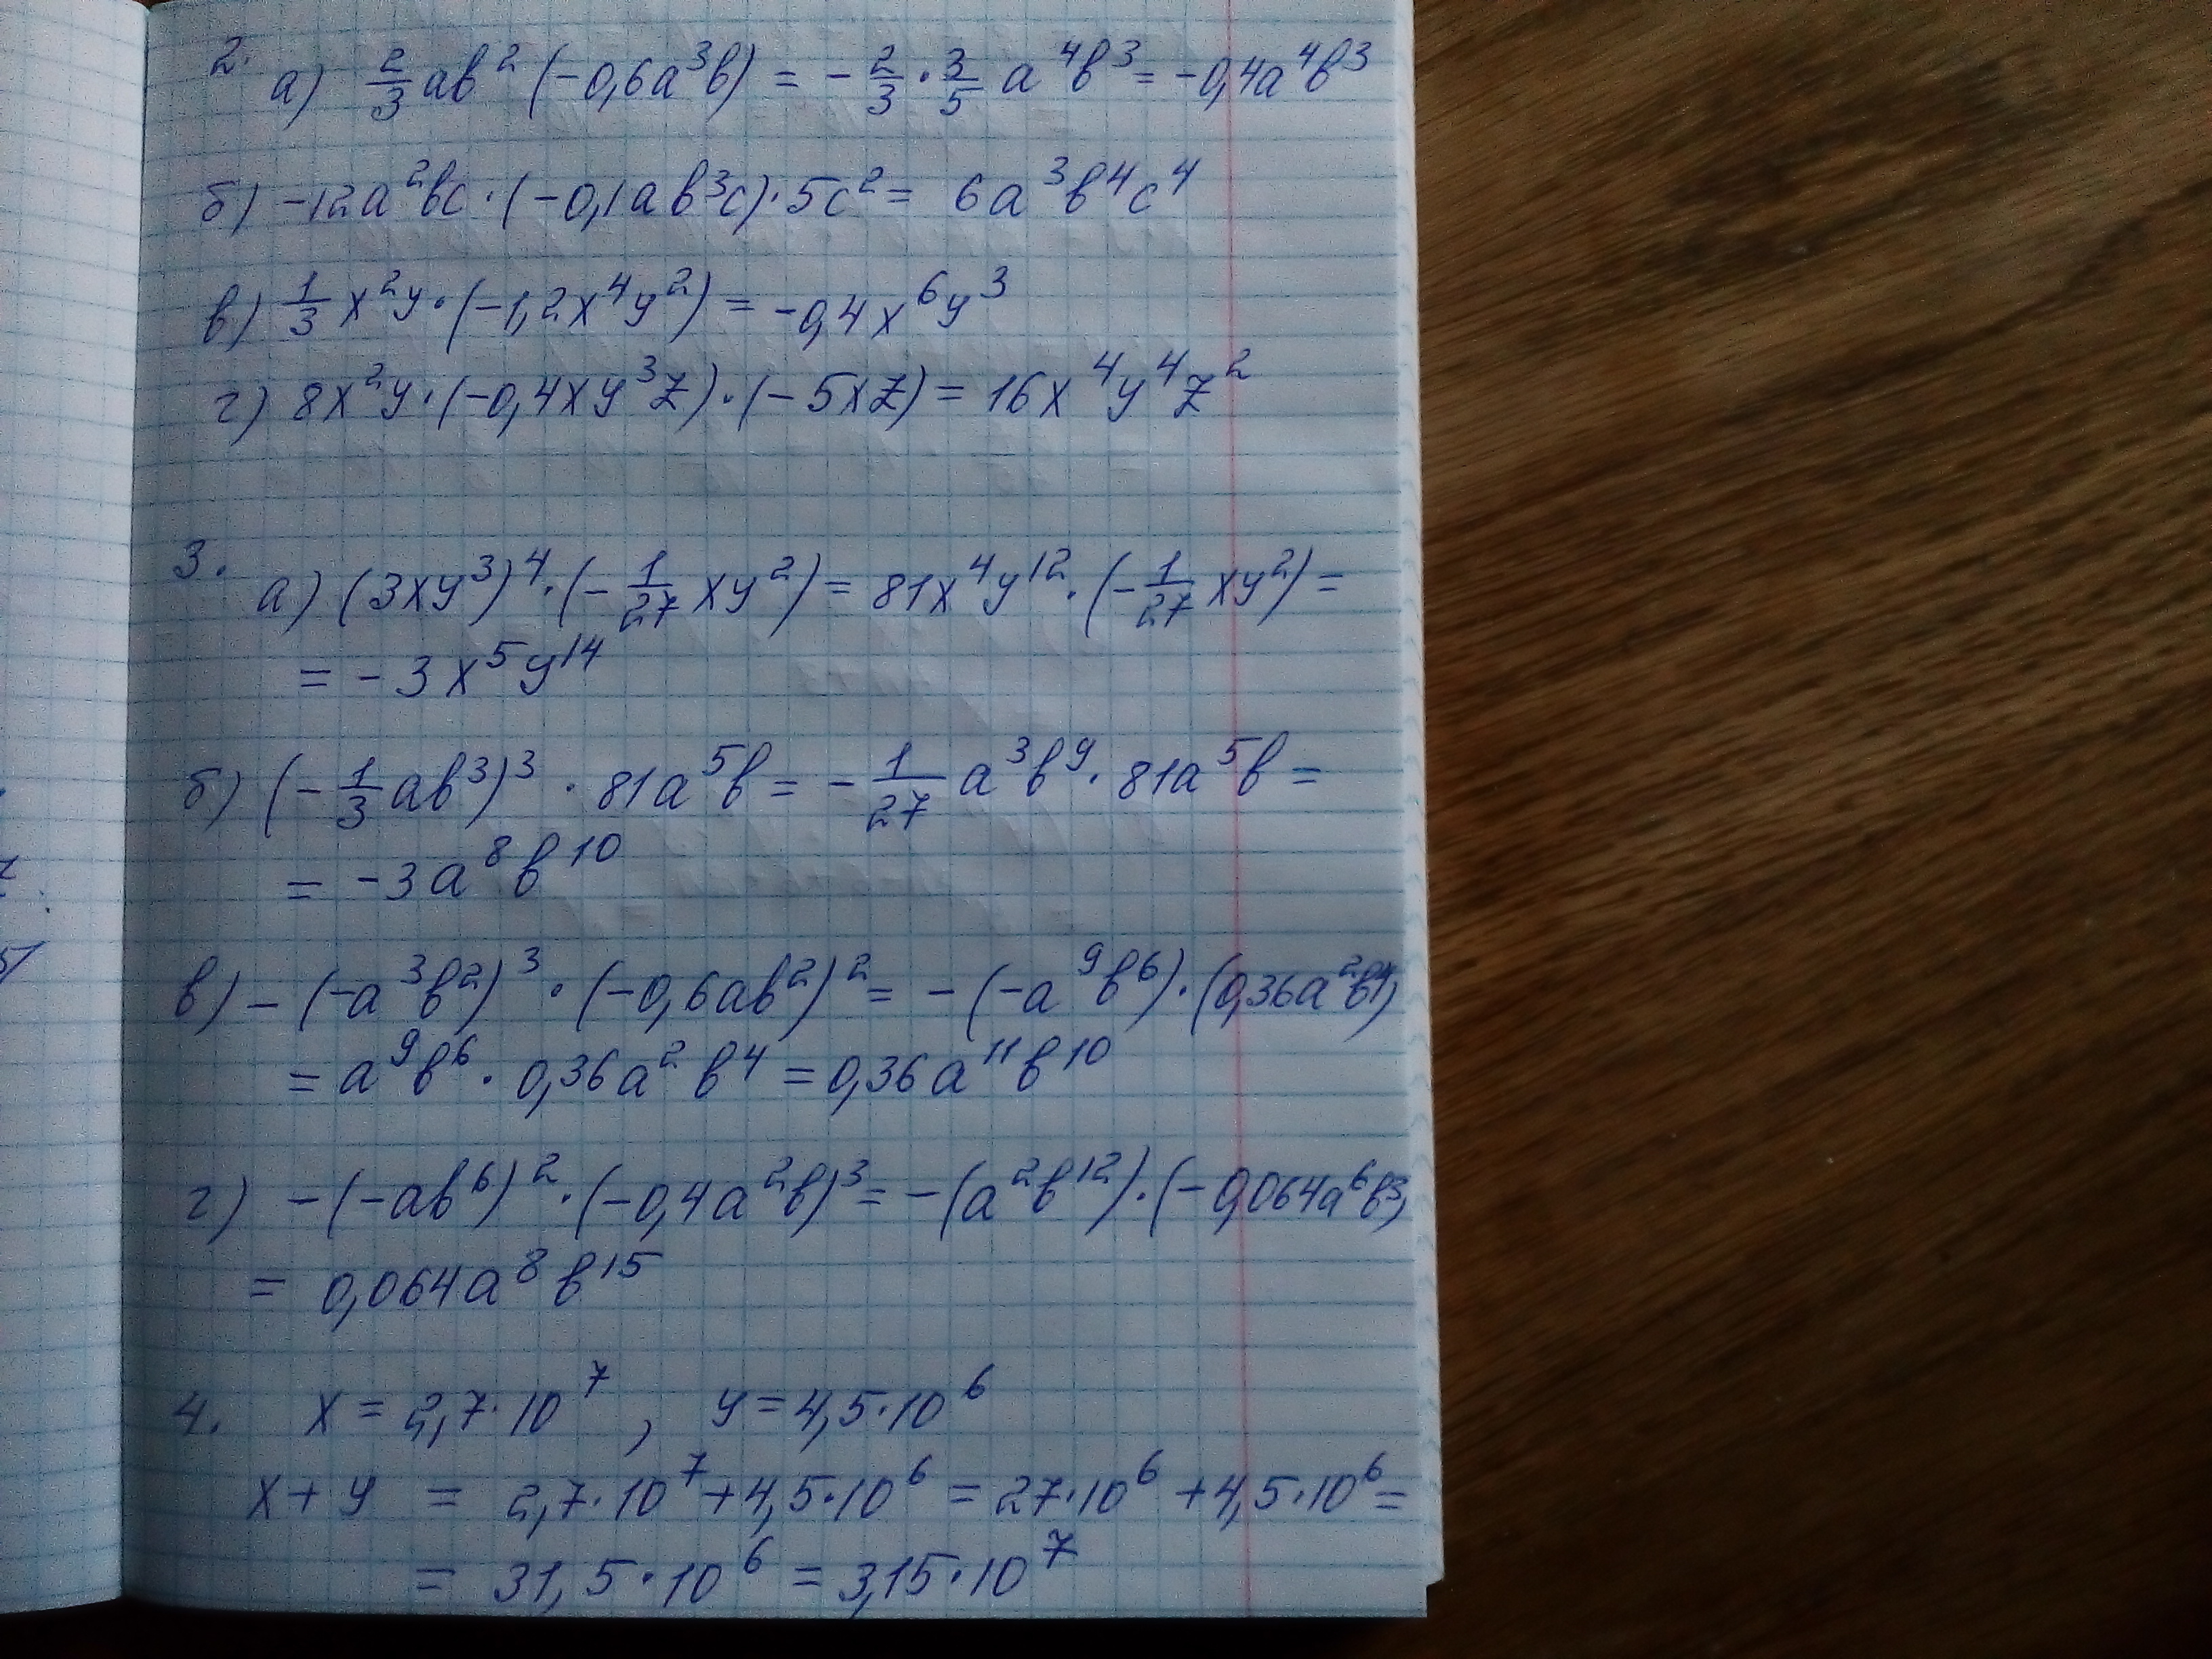 2. а) 2/3 ab² (-0,6a³b) = - 2/3 · 3/5 a⁴b³ = -0,4a⁴b³
б) -12a²bc · (-0,1ab³c) · 5c² = 6a³b⁴c⁴
в) 1/3 x²y · (-1,2x⁴y²) = -0,4x⁶y³
г) 8x²y · (-0,4xy³z) · (-5xz) = 16x⁴y⁴z²
3. а) (3xy³)⁴ · (- 1/27 xy²) = 81x⁴y¹² · (- 1/27 xy²) =
= -3x⁵y¹⁴
б) (- 1/3 ab³)³ · 81a⁵b = - 1/27 a³b⁹ · 81a⁵b =
= -3a⁸b¹⁰
в) -(-a³b²)³ · (-0,6ab²)² = -(-a⁹b⁶) · (0,36a²b⁴)
= a⁹b⁶ · 0,36a²b⁴ = 0,36a¹¹b¹⁰
г) -(-ab⁶)² · (-0,4a²b)³ = -(a²b¹²) · (-0,064a⁶b³)
= 0,064a⁸b¹⁵
4. x = 2,7 · 10⁷, y = 4,5 · 10⁶
x + y = 2,7 · 10⁷ + 4,5 · 10⁶ = 27 · 10⁶ + 4,5 · 10⁶ =
= 31,5 · 10⁶ = 3,15 · 10⁷